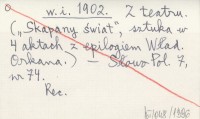 w. i. 1902. Z teatru.
("Skapany świat", sztuka w
4 aktach z epilogiem Wład.
Orkana.) — Słowo Pol. 7,
nr 74.
Rec.